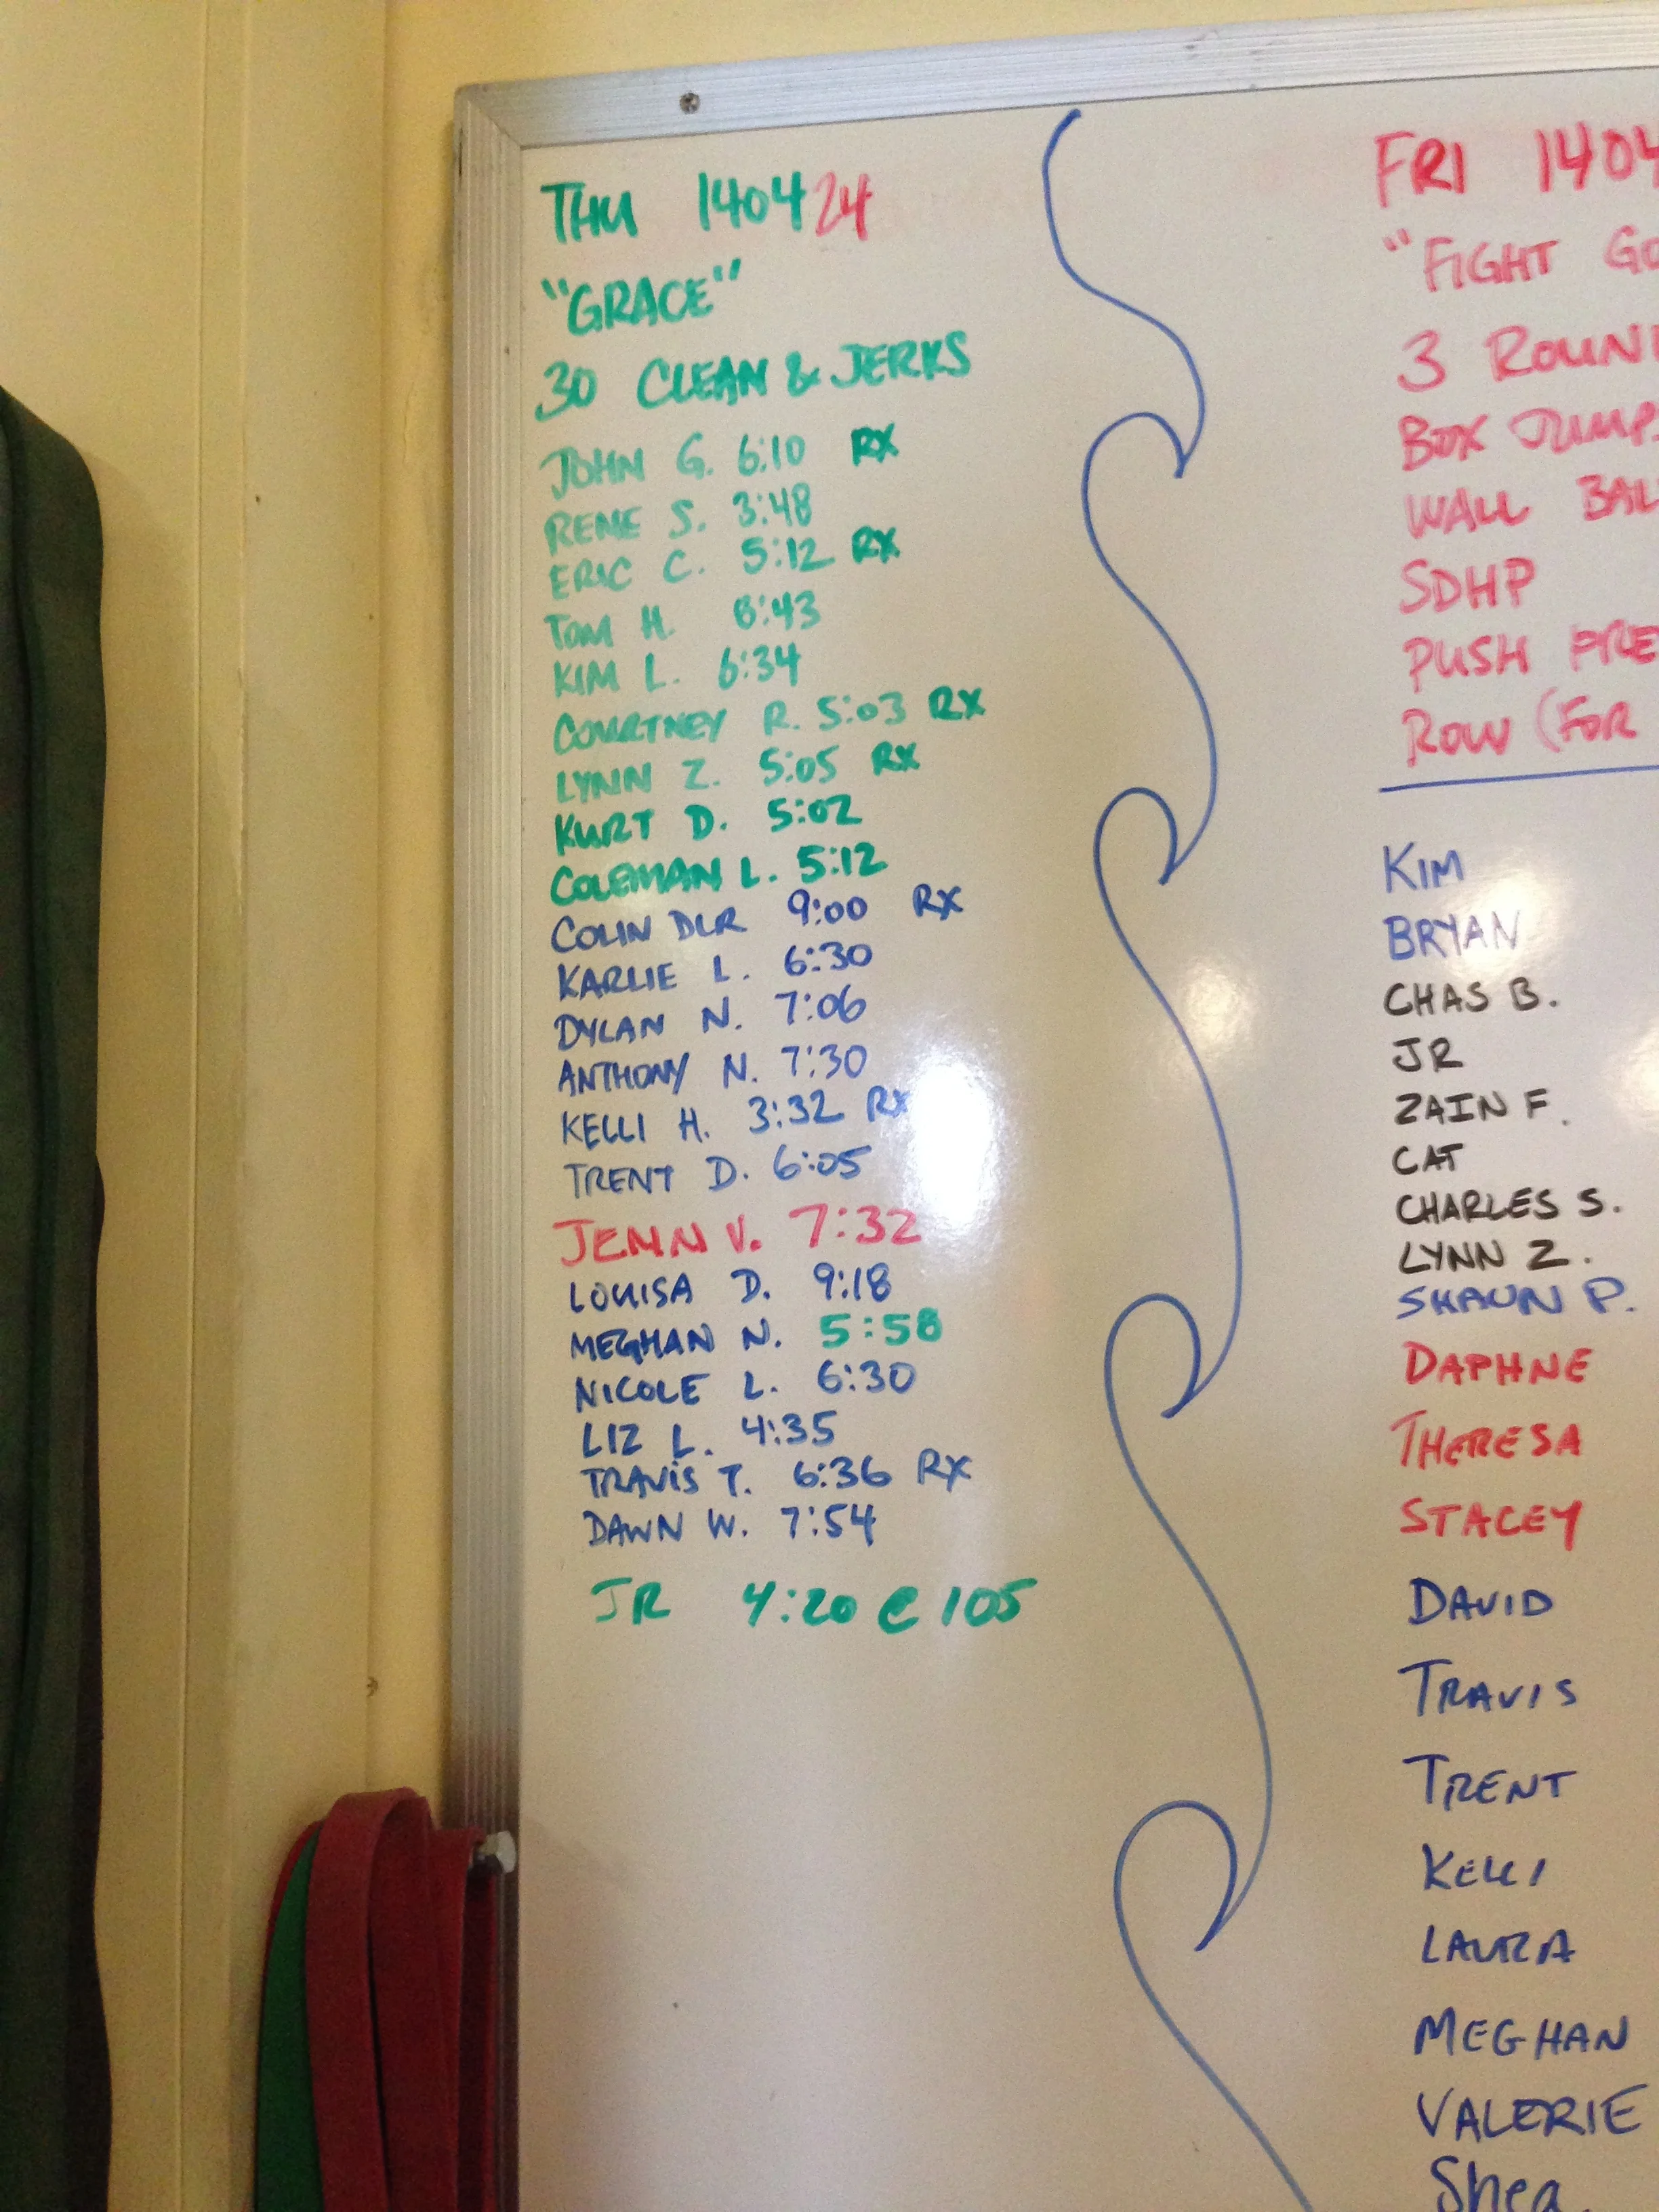 THU 140424
"GRACE"
30 CLEAN & JERKS
JOHN G. 6:10 RX
RENE S. 3:48
ERIC C. 5:12 RX
TOM H. 8:43
KIM L. 6:34
COURTNEY R. 5:03 RX
LYNN Z. 5:05 RX
KURT D. 5:02
COLEMAN L. 5:12
COLIN DLR 9:00 RX
KARLIE L. 6:30
DYLAN N. 7:06
ANTHONY N. 7:30
KELLI H. 3:32 RX
TRENT D. 6:05
JENN V. 7:32
LOUISA D. 9:18
MEGHAN N. 5:58
NICOLE L. 6:30
LIZ L. 4:35
TRAVIS T. 6:36 RX
DAWN W. 7:54
JR 4:20 @ 105
FRI 1404
"FIGHT GO
3 ROUN
BOX JUMPS
WALL BAL
SDHP
PUSH PRE
ROW (FOR
KIM
BRYAN
CHAS B.
JR
ZAIN F.
CAT
CHARLES S.
LYNN Z.
SHAUN P.
DAPHNE
THERESA
STACEY
DAVID
TRAVIS
TRENT
KELLI
LAURA
MEGHAN
VALERIE
Shea